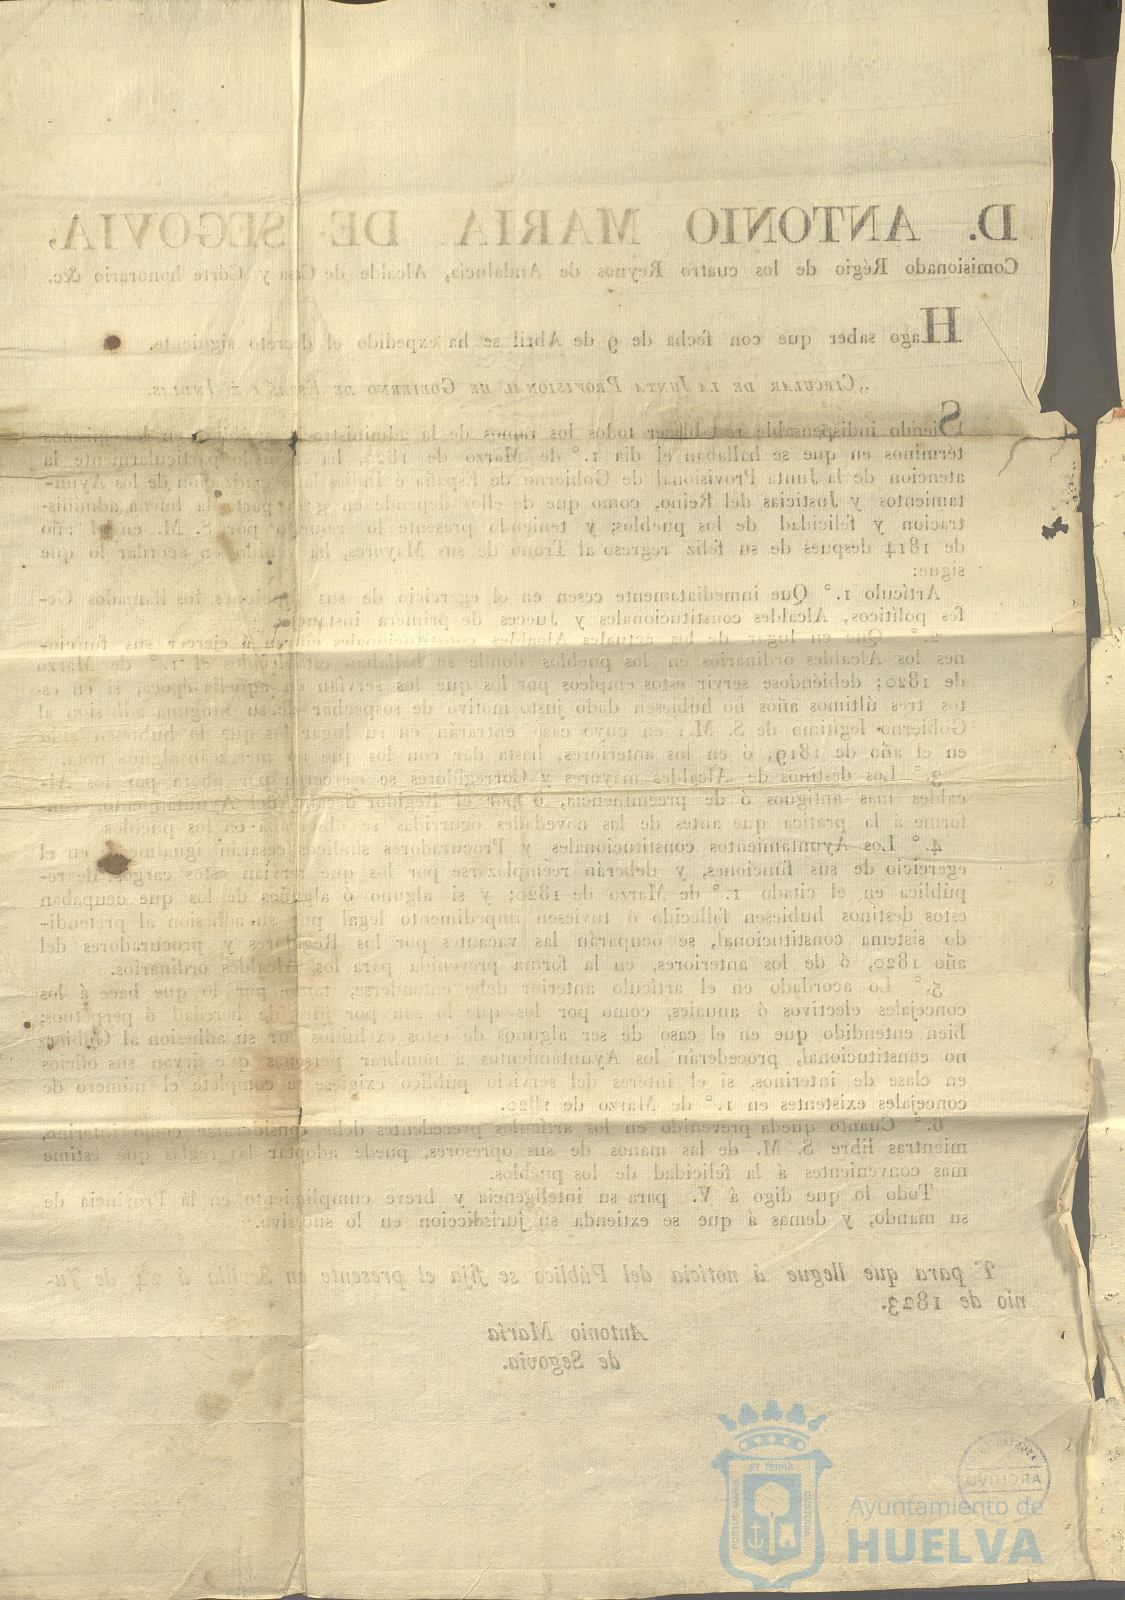 D. ANTONIO MARIA DE SEGOVIA,
Comisionado Régio de los cuatro Reynos de Andalucía, Alcalde de Casa y Córte honorario &c.
Hago saber que con fecha de 9 de Abril se ha expedido el decreto siguiente.
„CIRCULAR DE LA JUNTA PROVISIONAL DE GOBIERNO DE ESPAÑA É INDIAS.
Siendo indispensable restablecer todos los ramos de la administracion en los
términos en que se hallaban el dia 1.° de Marzo de 1820, ha particularmente la
atencion de la Junta Provisional de Gobierno de España é Indias la organizacion de los Ayun-
tamientos y Justicias del Reino, como que de ellos depende en gran parte la buena adminis-
tracion y felicidad de los pueblos; y teniendo presente lo resuelto por S. M. en el año
de 1814 despues de su feliz regreso al Trono de sus Mayores, ha venido en acordar lo que
sigue:
Artículo 1.° Que inmediatamente cesen en el egercicio de sus funciones los llamados Ge-
fes políticos, Alcaldes constitucionales y Jueces de primera instancia.
2.° Que en lugar de los actuales Alcaldes constitucionales á ejercer sus funcio-
nes los Alcaldes ordinarios en los pueblos donde se hallaban establecidos el 1.° de Marzo
de 1820; debiéndose servir estos empleos por los que los servían en aquella época, si en es-
tos tres últimos años no hubiesen dado justo motivo de sospechar de su ninguna adhesion al
Gobierno legítimo de S. M.: en cuyo caso entrarán en su lugar los que lo hubiesen sido
en el año de 1819, ó en los anteriores, hasta dar con los que no merezcan aquella nota.
3.° Los destinos de Alcaldes mayores y Corregidores se ejercerán por ahora por los Al-
caldes mas antiguos ó de preeminencia, ó por el Regidor decano del Ayuntamiento, con-
forme á la pratica que antes de las novedades ocurridas se observaba en los pueblos.
4.° Los Ayuntamientos constitucionales y Procuradores síndicos cesarán igualmente en el
egercicio de sus funciones, y deberán reemplazarse por los que servian estos cargos de re-
pública en el citado 1.° de Marzo de 1820: y si alguno ó algunos de los que ocupaban
estos destinos hubiesen fallecido ó tuviesen impedimento legal por su adhesion al pretendi-
do sistema constitucional, se ocuparán las vacantes por los Regidores y procuradores del
año 1820, ó de los anteriores, en la forma prevenida para los Alcaldes ordinarios.
5.° Lo acordado en el artículo anterior debe entenderse, tanto por lo que hace á los
concejales electivos ó anuales, como por los que lo son por juro de heredad ó perpetuos;
bien entendido que en el caso de ser algunos de estos excluidos por su adhesion al Gobier-
no constitucional, procederán los Ayuntamientos á nombrar personas que sirvan sus oficios
en clase de interinos, si el interes del servicio público exigiese se complete el número de
concejales existentes en 1.° de Marzo de 1820.
6.° Cuanto queda prevenido en los artículos precedentes debe considerarse como interino,
mientras libre S. M. de las manos de sus opresores, puede adoptar las reglas que estime
mas convenientes á la felicidad de los pueblos.
Todo lo que digo á V. para su inteligencia y breve cumplimiento en la Provincia de
su mando, y demas á que se extienda su jurisdiccion en lo sucesivo.„
Y para que llegue á noticia del Público se fija el presente en Sevilla á 22 de Ju-
nio de 1823.
Antonio María
de Segovia.
ET TERRÆ
PORTUS MARIS
CUSTODIA
ARCHIVO
Ayuntamiento de
HUELVA